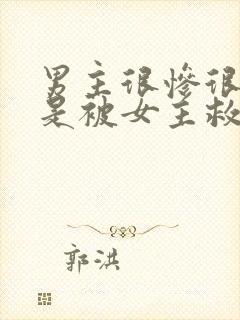 男主很惨很
是被女主救
郭洪